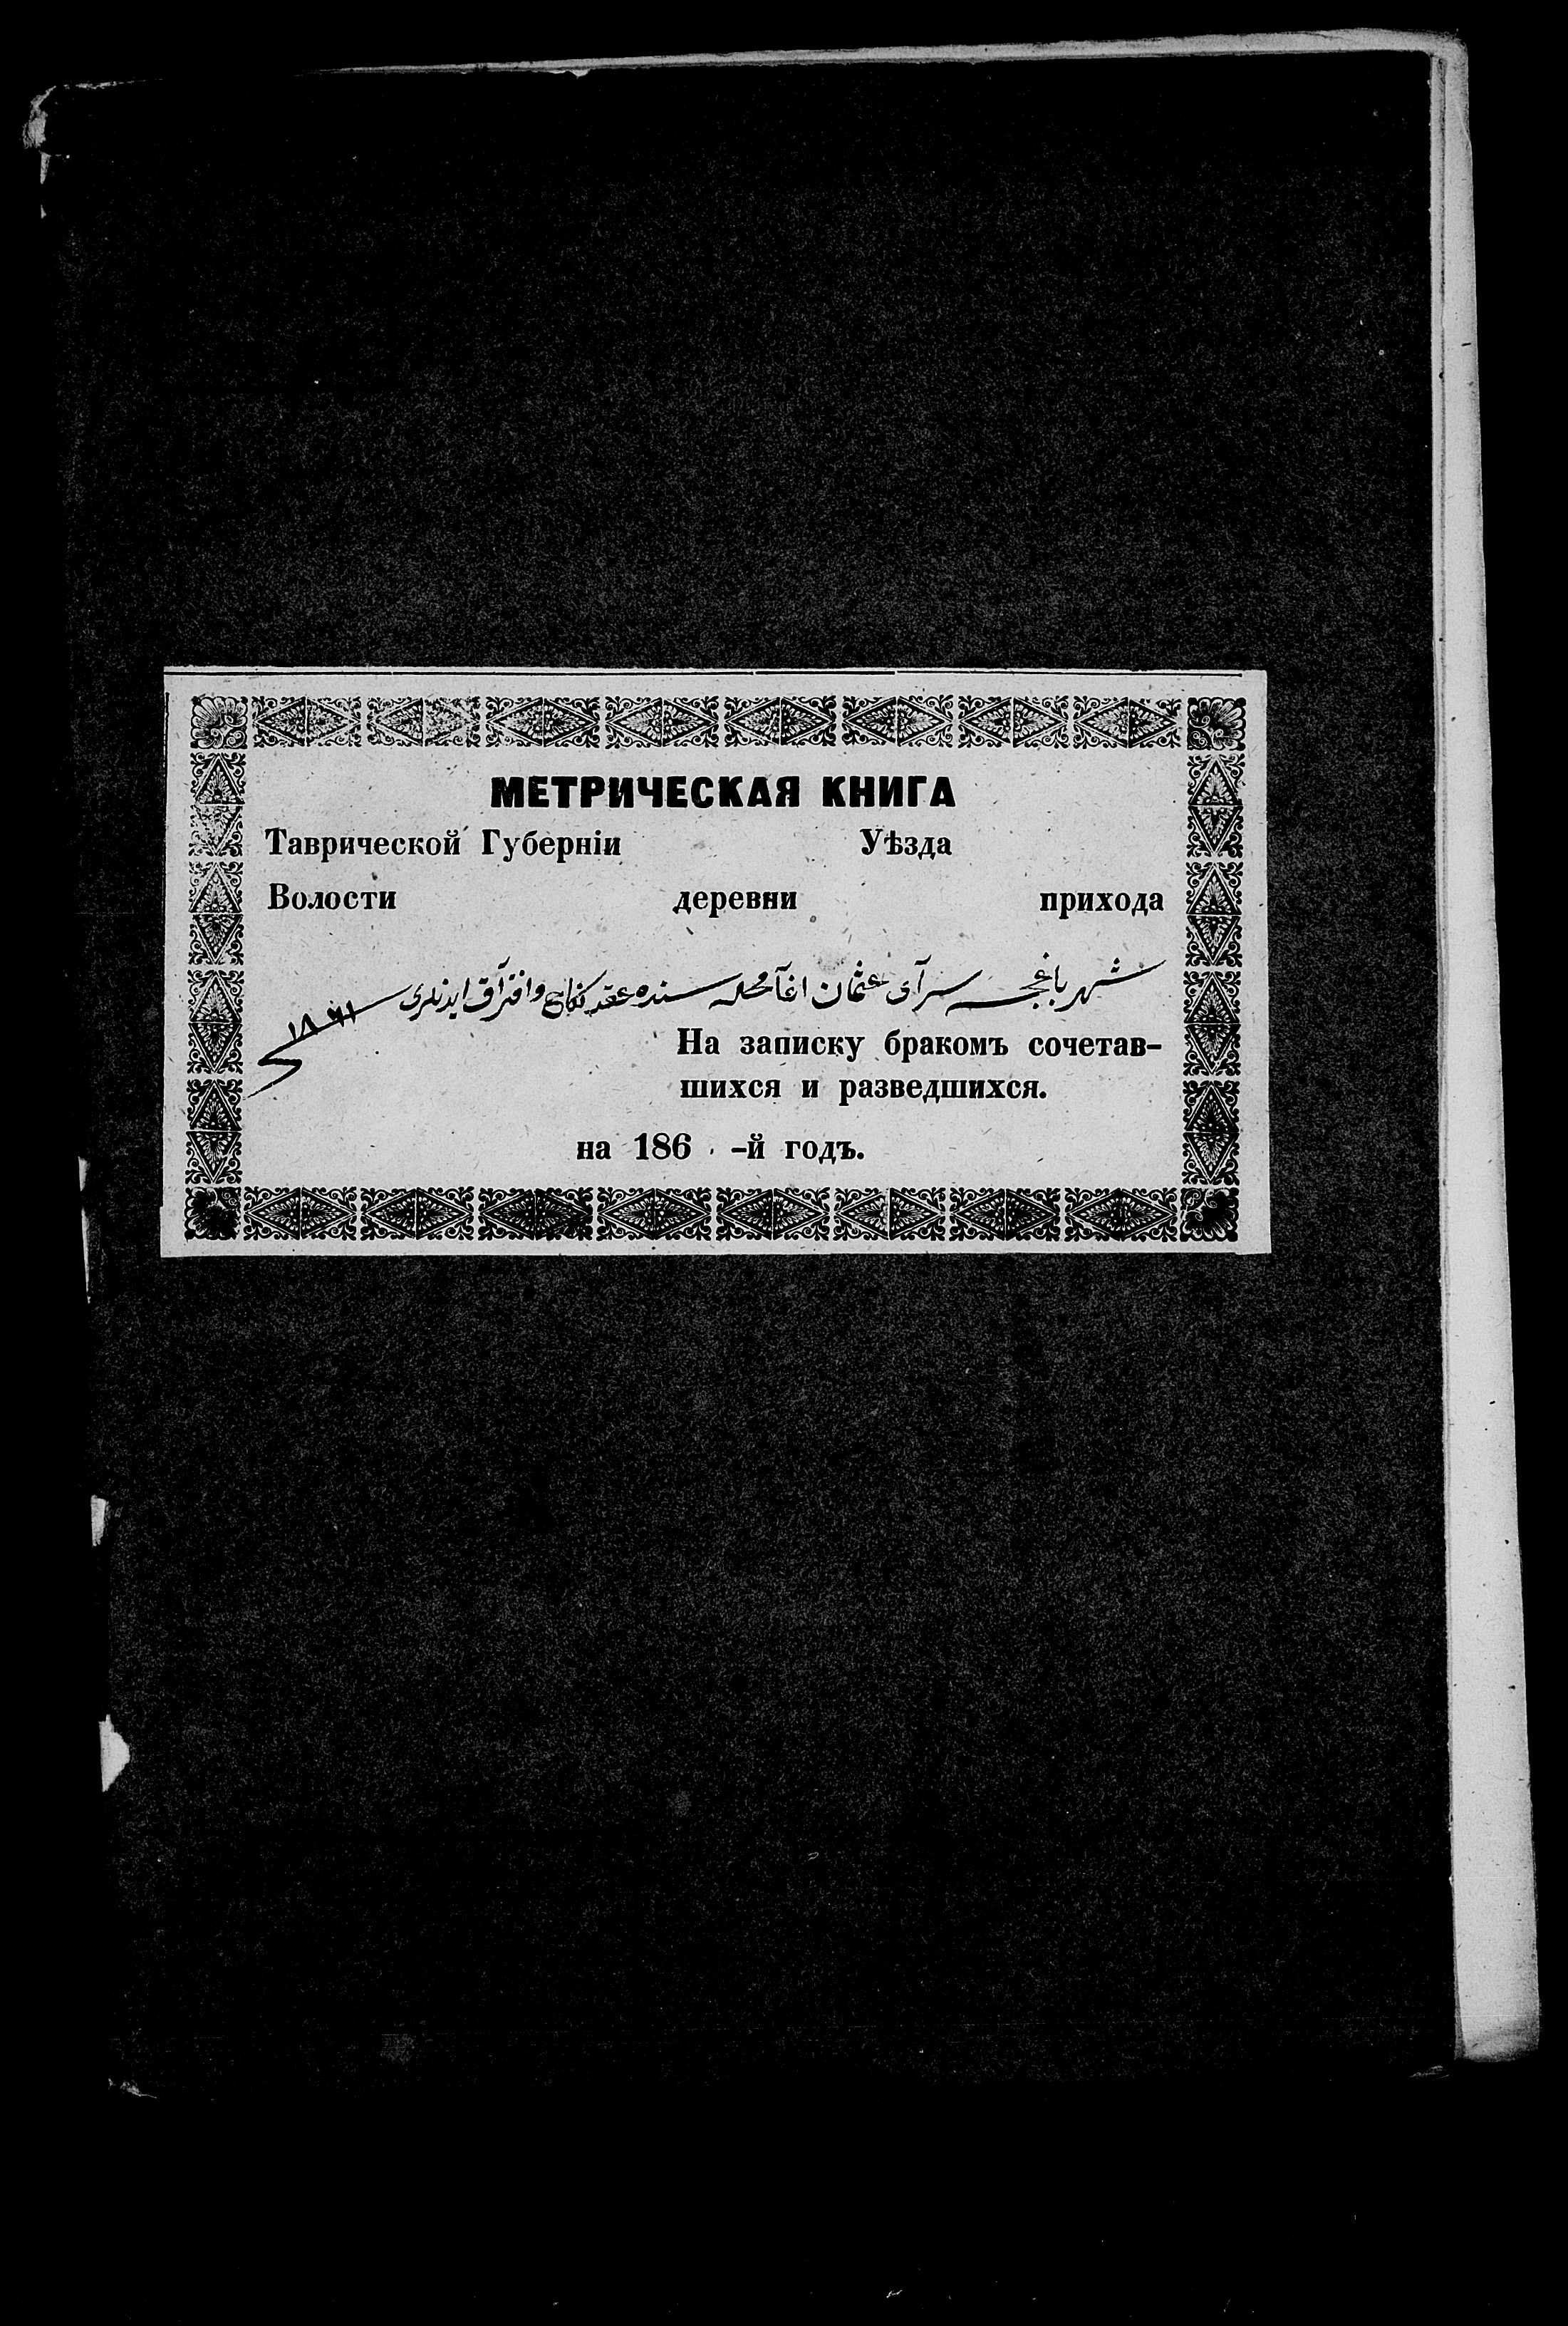 МЕТРИЧЕСКАЯ КНИГА
Таврической Губерніи Уѣзда
Волости деревни прихода
شهر باغچه سرآی عثمان اغا محله سنده عقد نكاح وافتراق ایدنلری
На записку бракомъ сочетав-
шихся и разведшихся.
на 186 -й годъ.